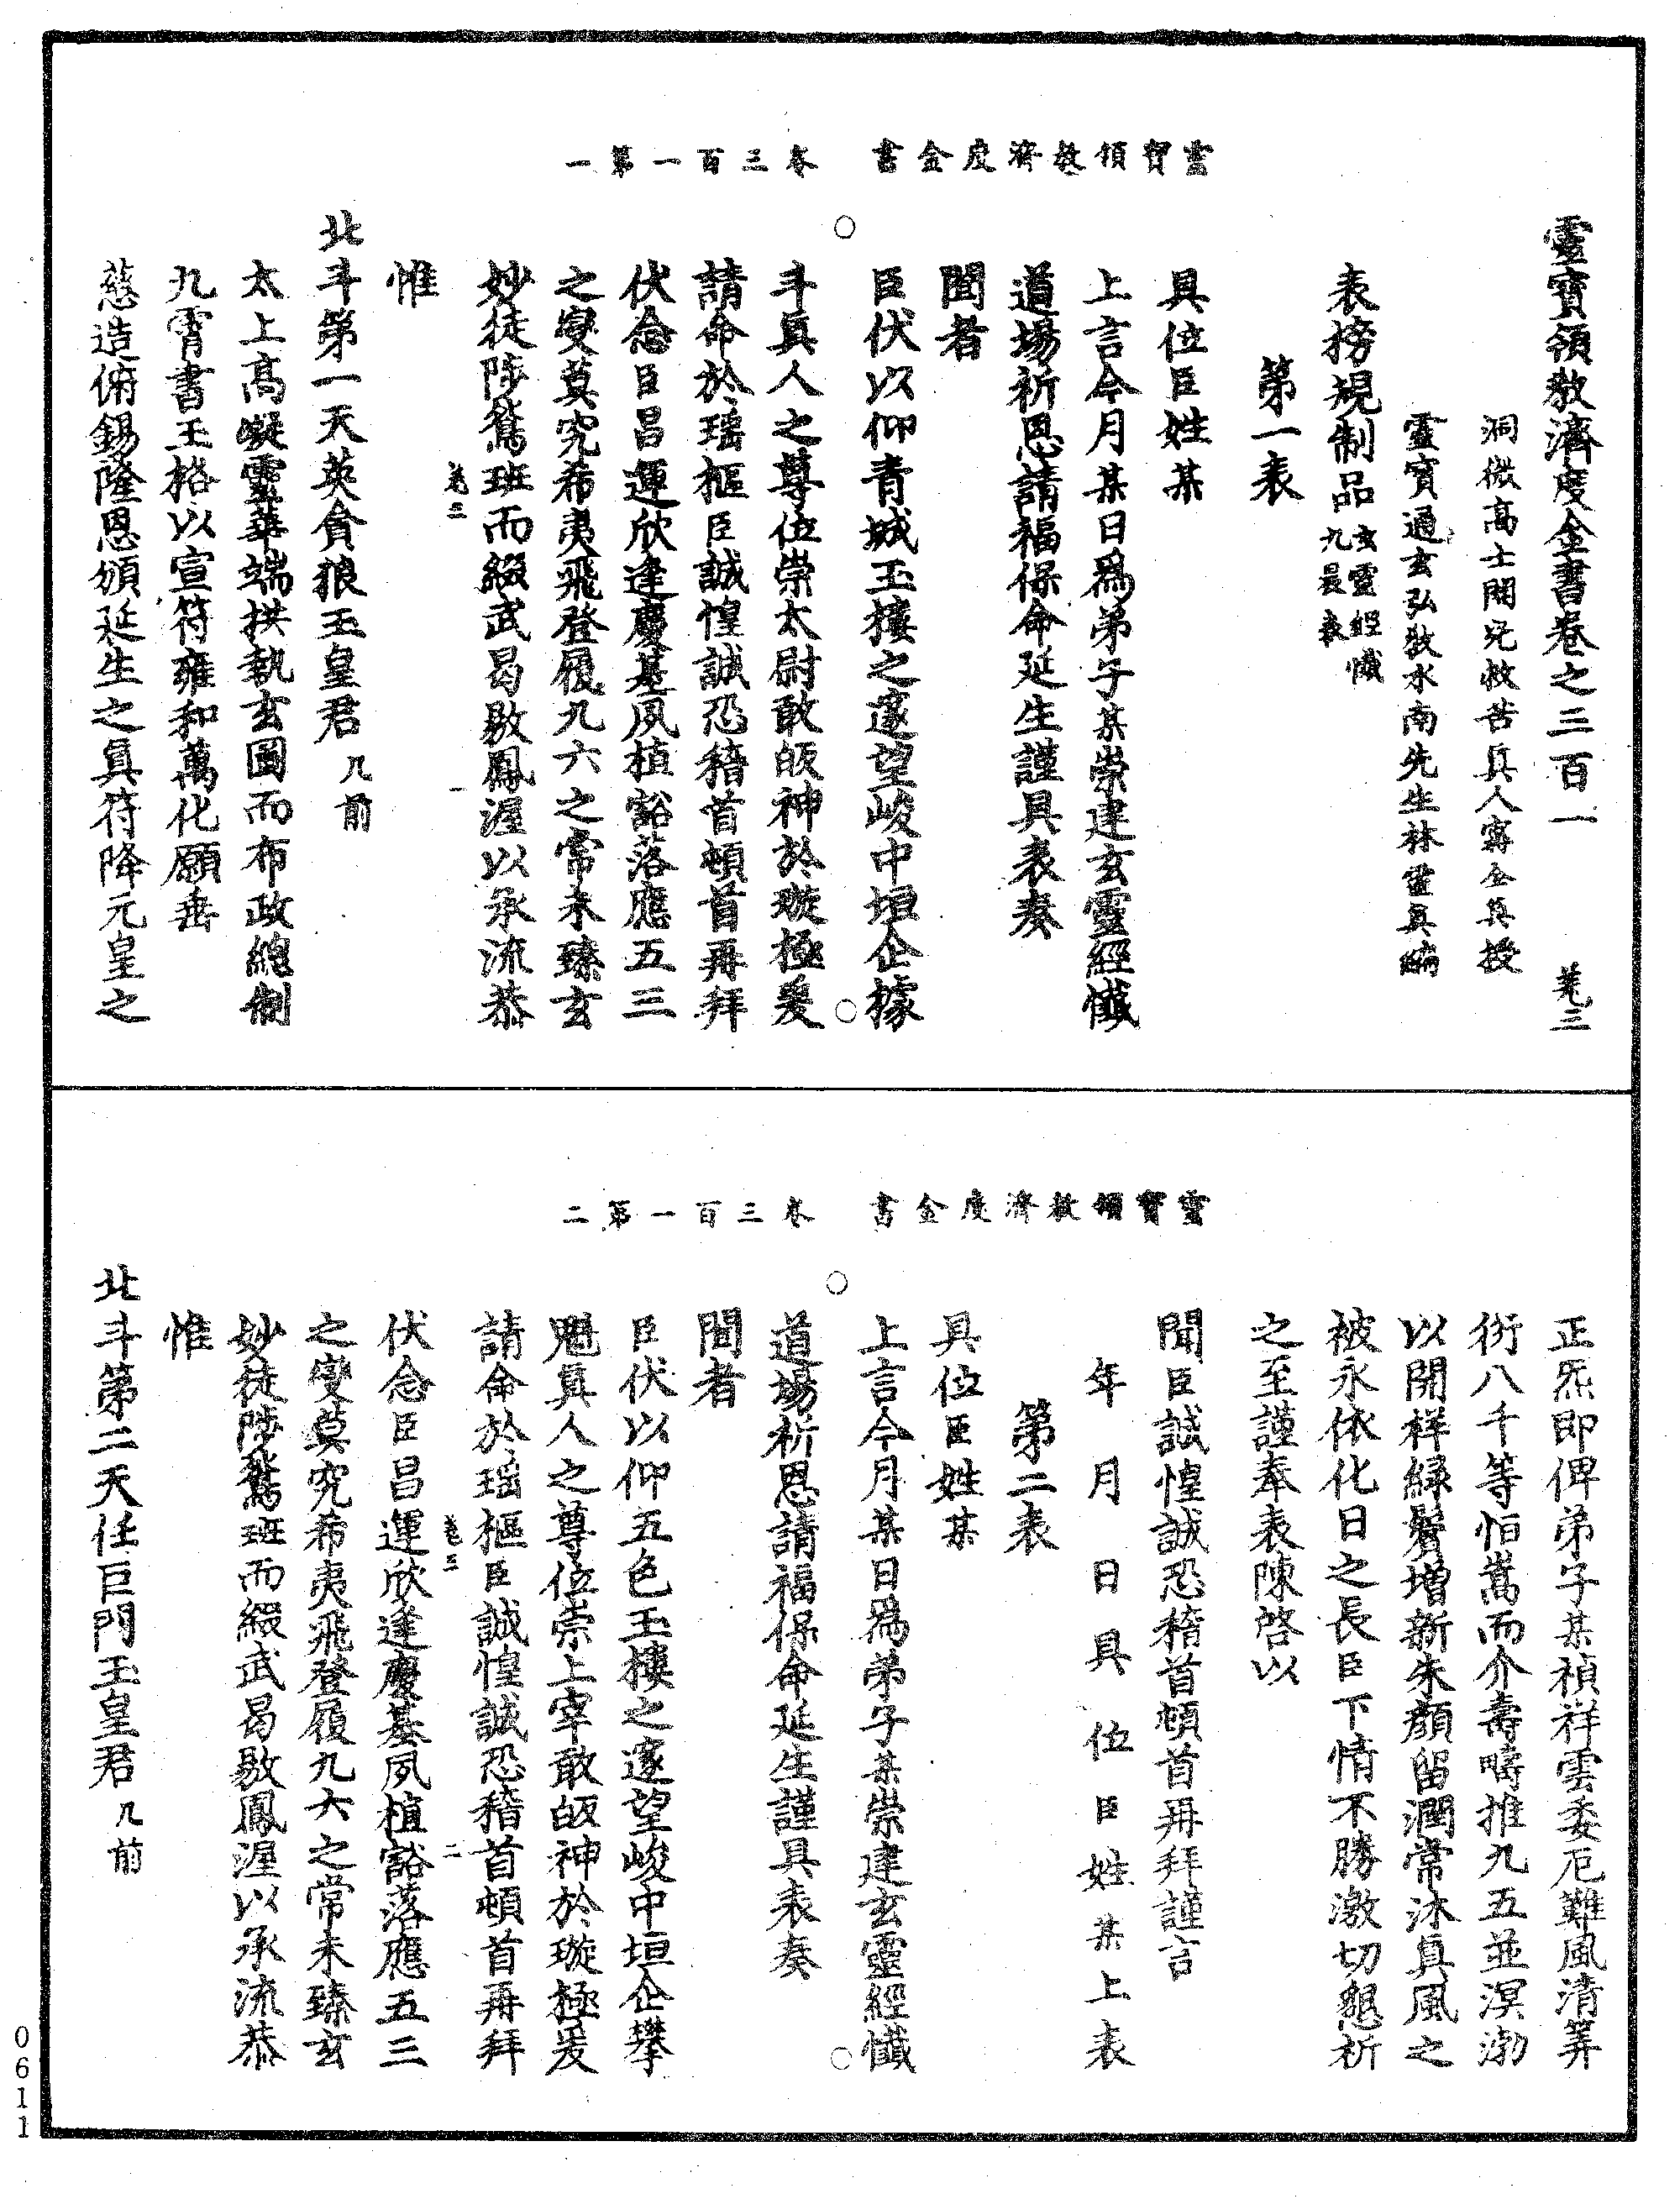 靈寶領教濟度金書　卷三百一第一
靈寶領教濟度金書卷之三百一　羌三
洞微高士開光救苦真人寗全真授
靈寶通玄弘教水南先生林靈真編
表榜規制品玄靈經懺九晨表
第一表
具位臣姓某
上言今月某日爲弟子某崇建玄靈經懺
道場祈恩請福保命延生謹具表奏
聞者
臣伏以仰青城玉樓之邃望峻中垣企據
斗眞人之尊位崇太尉敢皈神於璇極爰
請命於瑶樞臣誠惶誠恐稽首頓首再拜
伏念臣昌運欣逢慶基夙植豁落應五三
之變莫究希夷飛登履九六之常未臻玄
妙徒陟鵞班而綴武曷敭鳳渥以承流恭
羌三　一
惟
北斗第一天英貪狼玉皇君几前
太上高凝靈華端拱執玄圖而布政總制
九霄書玉格以宣符雍和萬化願垂
慈造俯錫隆恩頒延生之眞符降元皇之
靈寶領教濟度金書　卷三百一第二
正炁即俾弟子某禎祥雲委厄難風清筭
衍八千等恒嵩而介壽疇推九五並溟渤
以開祥緑鬢增新朱顏留潤常沐眞風之
被永依化日之長臣下情不勝激切懇祈
之至謹奉表陳啓以
聞臣誠惶誠恐稽首頓首再拜謹言
年月日具位臣姓某上表
第二表
具位臣姓某
上言今月某日爲弟子某崇建玄靈經懺
道場祈恩請福保命延生謹具表奏
聞者
臣伏以仰五色玉樓之邃望峻中垣企攀
魁眞人之尊位崇上宰敢皈神於璇極爰
請命於瑶樞臣誠惶誠恐稽首頓首再拜
羌三　二
伏念臣昌運欣逢慶基夙植豁落應五三
之變莫究希夷飛登履九六之常未臻玄
妙徒陟鵞班而綴武曷敭鳳渥以承流恭
惟
北斗第二天任巨門玉皇君几前
0611